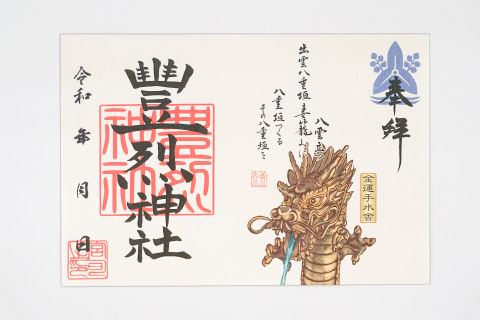 奉拝
金運手水舎
八雲立
出雲八重垣妻籠
八重垣つくる
その八重垣を
豊烈神社
豐烈神社
令和 年 月 日